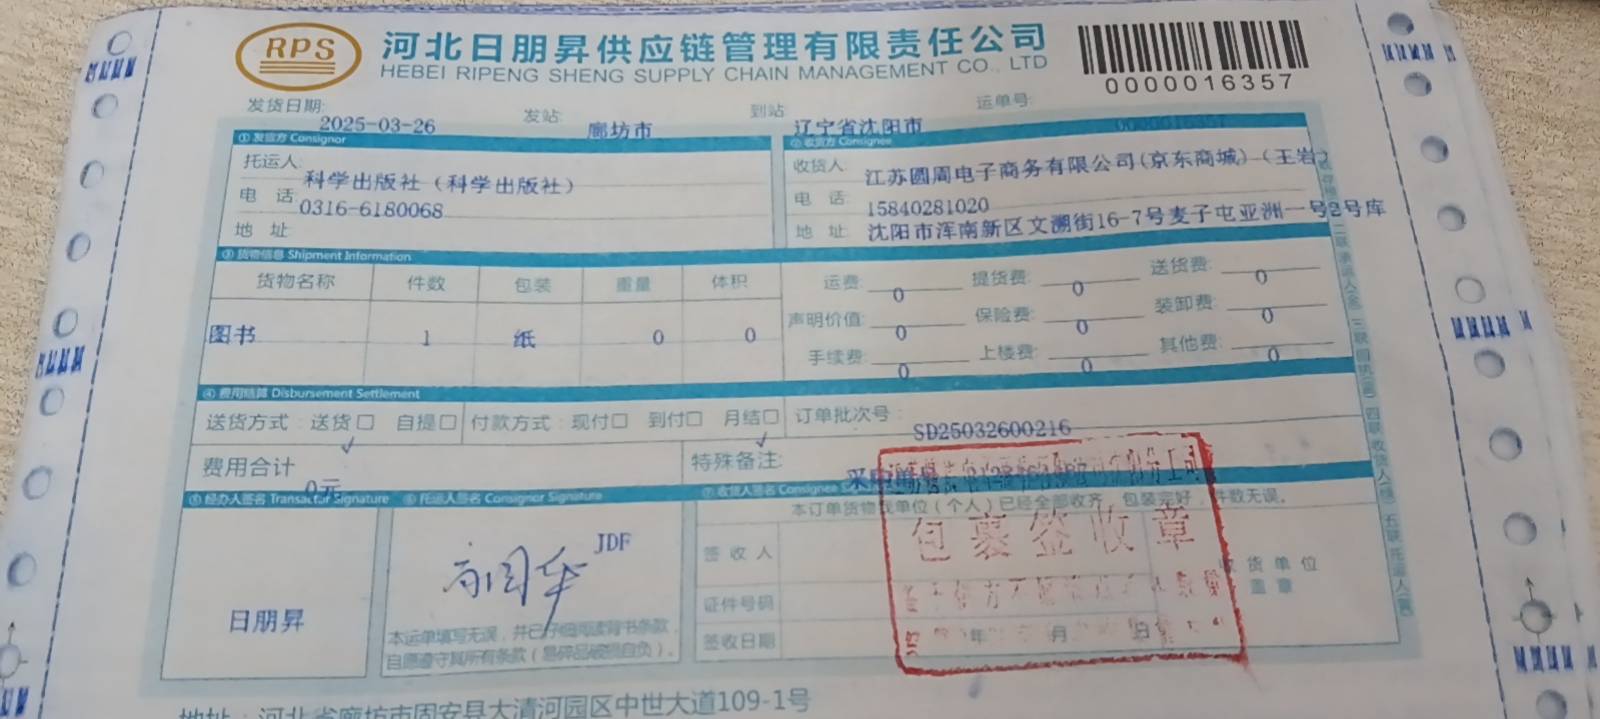 RPS
河北日朋昇供应链管理有限责任公司
HEBEI RIPENG SHENG SUPPLY CHAIN MANAGEMENT CO., LTD
0000016357
发货日期: 2025-03-26 发站: 廊坊市 到站: 辽宁省沈阳市 运单号: 0000016357
① 发货方 Consignor
② 收货方 Consignee
托运人: 科学出版社（科学出版社）
电 话: 0316-6180068
地 址:
收货人: 江苏圆周电子商务有限公司(京东商城)（王岩）
电 话: 15840281020
地 址: 沈阳市浑南新区文溯街16-7号麦子屯亚洲一号2号库
③ 货物信息 Shipment Information
货物名称 件数 包装 重量 体积
图书 1 纸 0 0
运费: 0 提货费: 0 送货费: 0
声明价值: 0 保险费: 0 装卸费: 0
手续费: 0 上楼费: 0 其他费: 0
④ 费用结算 Disbursement Settlement
送货方式: 送货☐ 自提☐ 付款方式: 现付☐ 到付☐ 月结☐ 订单批次号: SD25032600216
✓ ✓
费用合计 0元
特殊备注:
⑤ 经办人签名 Transactor Signature
⑥ 托运人签名 Consignor Signature
⑦ 收货人签名 Consignee
本订单货物我单位（个人）已经全部收齐，包装完好，件数无误。
日朋昇
JDF
本运单填写无误，并已仔细阅读背书条款，
自愿遵守其所有条款（易碎品破损自负）。
签收人
证件号码
签收日期 年 月 日
收货单位
盖章
包裹签收章
地址: 河北省廊坊市固安县大清河园区中世大道109-1号